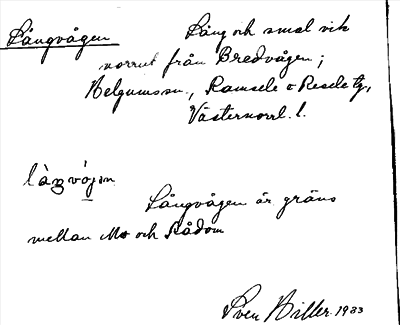 Långvågen Lång och smal vik
norrut från Bredvågen;
Helgumssn., Ramsele o Resele tg,
Västernorrl. l.
là̀ŋvá̀gən
Långvågen är gräns
mellan Mo och Rådom
Sven Hiller. 1933